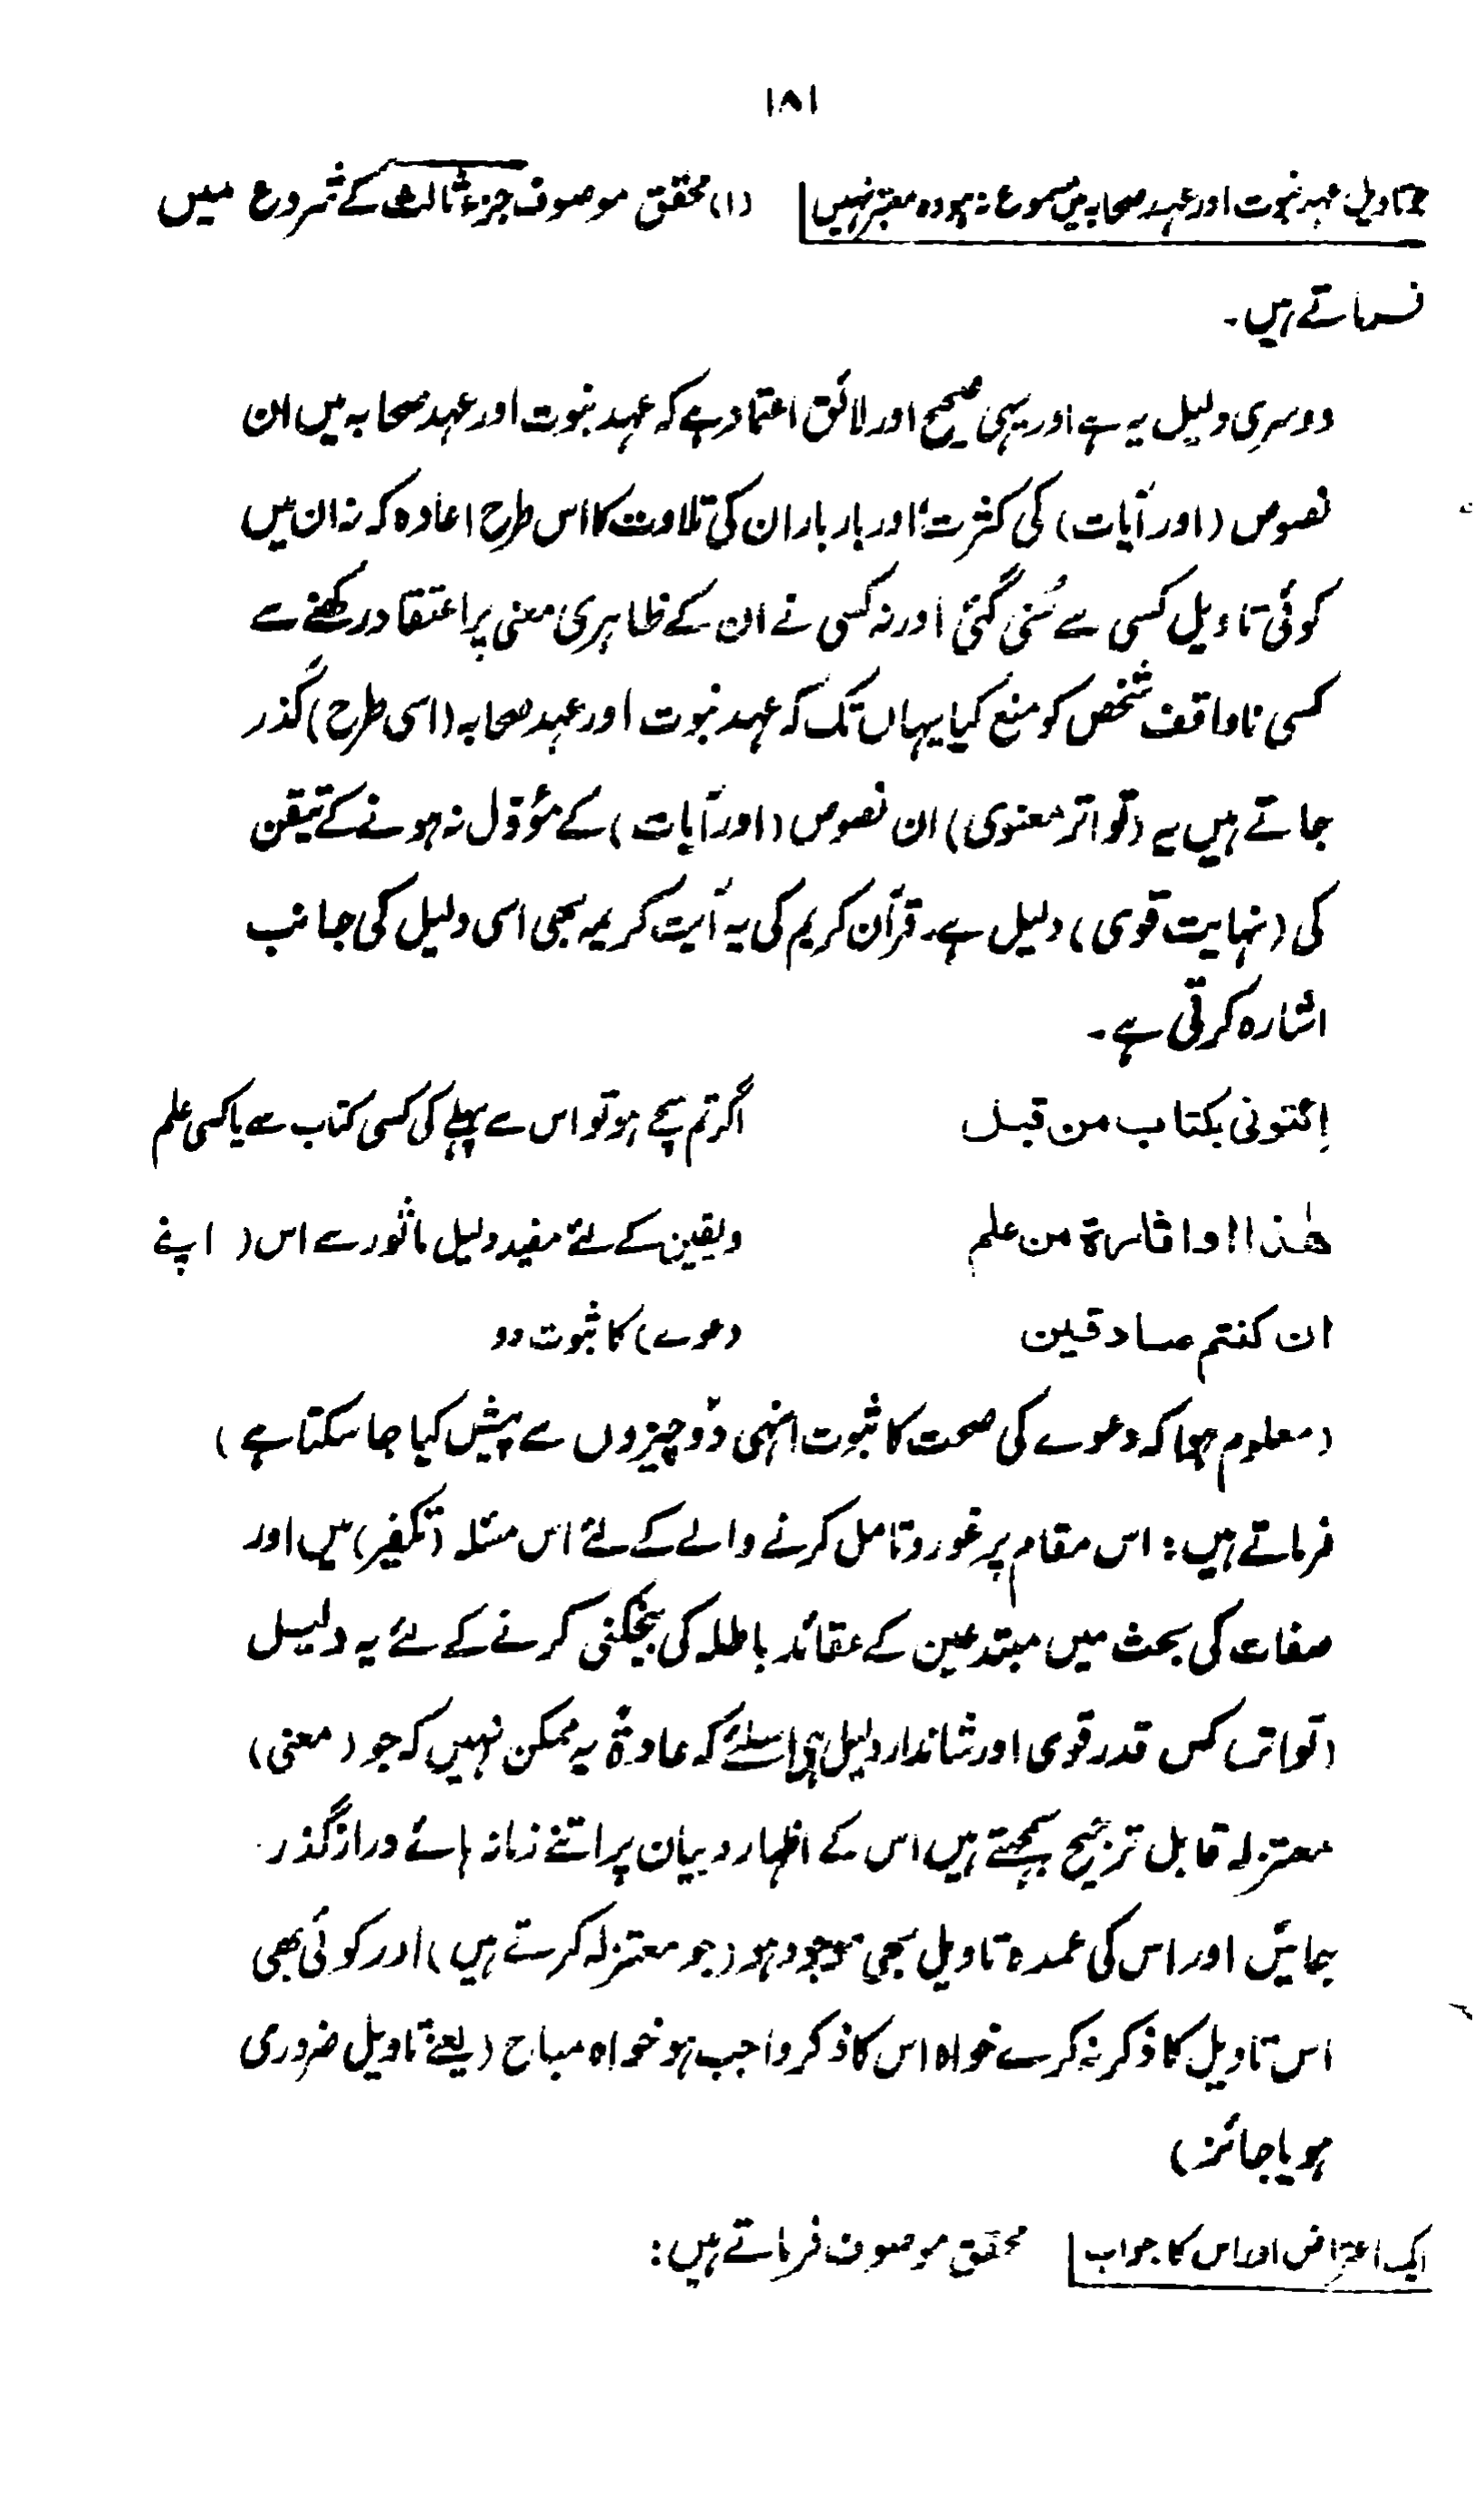 ۱۸۱
جو تاویل عہد نبوت اور عہد صحابہ میں مسموع نہ ہو وہ معتبر نہیں (۱) محقق موصوف جزء ثالث کے شروع میں
فرماتے ہیں۔
دوسری دلیل یہ ہے اور یہی صحیح اور لائق اعتماد ہے کہ عہد نبوت اور عہد صحابہ میں ان
نصوص (اور آیات) کی کثرت اور بار بار ان کی تلاوت کا اس طرح اعادہ کہ نہ ان میں
کوئی تاویل کسی سے سُنی گئی اور نہ کسی نے ان کے ظاہری معنی پر اعتقاد رکھنے سے
کسی ناواقف شخص کو منع کیا یہاں تک کہ عہد نبوت اور عہد صحابہ (اسی طرح) گذر
جاتے ہیں یہ (تواتر معنوی) ان نصوص (اور آیات) کے مؤول نہ ہونے کے تیقن
کی (نہایت قوی) دلیل ہے۔ قرآن کریم کی یہ آیت کریمہ بھی اسی دلیل کی جانب
اشارہ کرتی ہے۔
اِئتونی بکتاب من قبل اگر تم سچے ہو تو اس سے پہلے کی کسی کتاب سے یا کسی علم
ھٰذا او اثارۃ من علم ویقین کے لئے مفید دلیل ماثور سے اس (اپنے
ان کنتم صادقین دعوے) کا ثبوت دو
(معلوم ہوا کہ دعوے کی صحت کا ثبوت انہی دو چیزوں سے پیش کیا جا سکتا ہے)
فرماتے ہیں: اس مقام پر غور و تامل کرنے والے کے لئے اس مسئلہ (تکفیر) میں اور
صفات کی بحث میں مبتدعین کے عقائد باطلہ کی بیخکنی کرنے کے لئے یہ دلیل
(تواتر) کس قدر قوی اور شاندار دلیل ہے اسلئے کہ عادۃً یہ ممکن نہیں کہ جو (معنی)
معتزلہ قابل ترجیح سمجھتے ہیں اس کے اظہار و بیان پر اتنے زمانہ ہائے دراز گذر
جائیں اور اس کی عمدہ تاویل بھی موجود ہو (جو معتزلہ کرتے ہیں) اور کوئی بھی
اس تاویل کا ذکر نہ کرے خواہ اس کا ذکر واجب ہو خواہ مباح (یعنے تاویل ضروری
ہو یا جائز)
ایک اعتراض اور اس کا جواب محقق موصوف فرماتے ہیں: